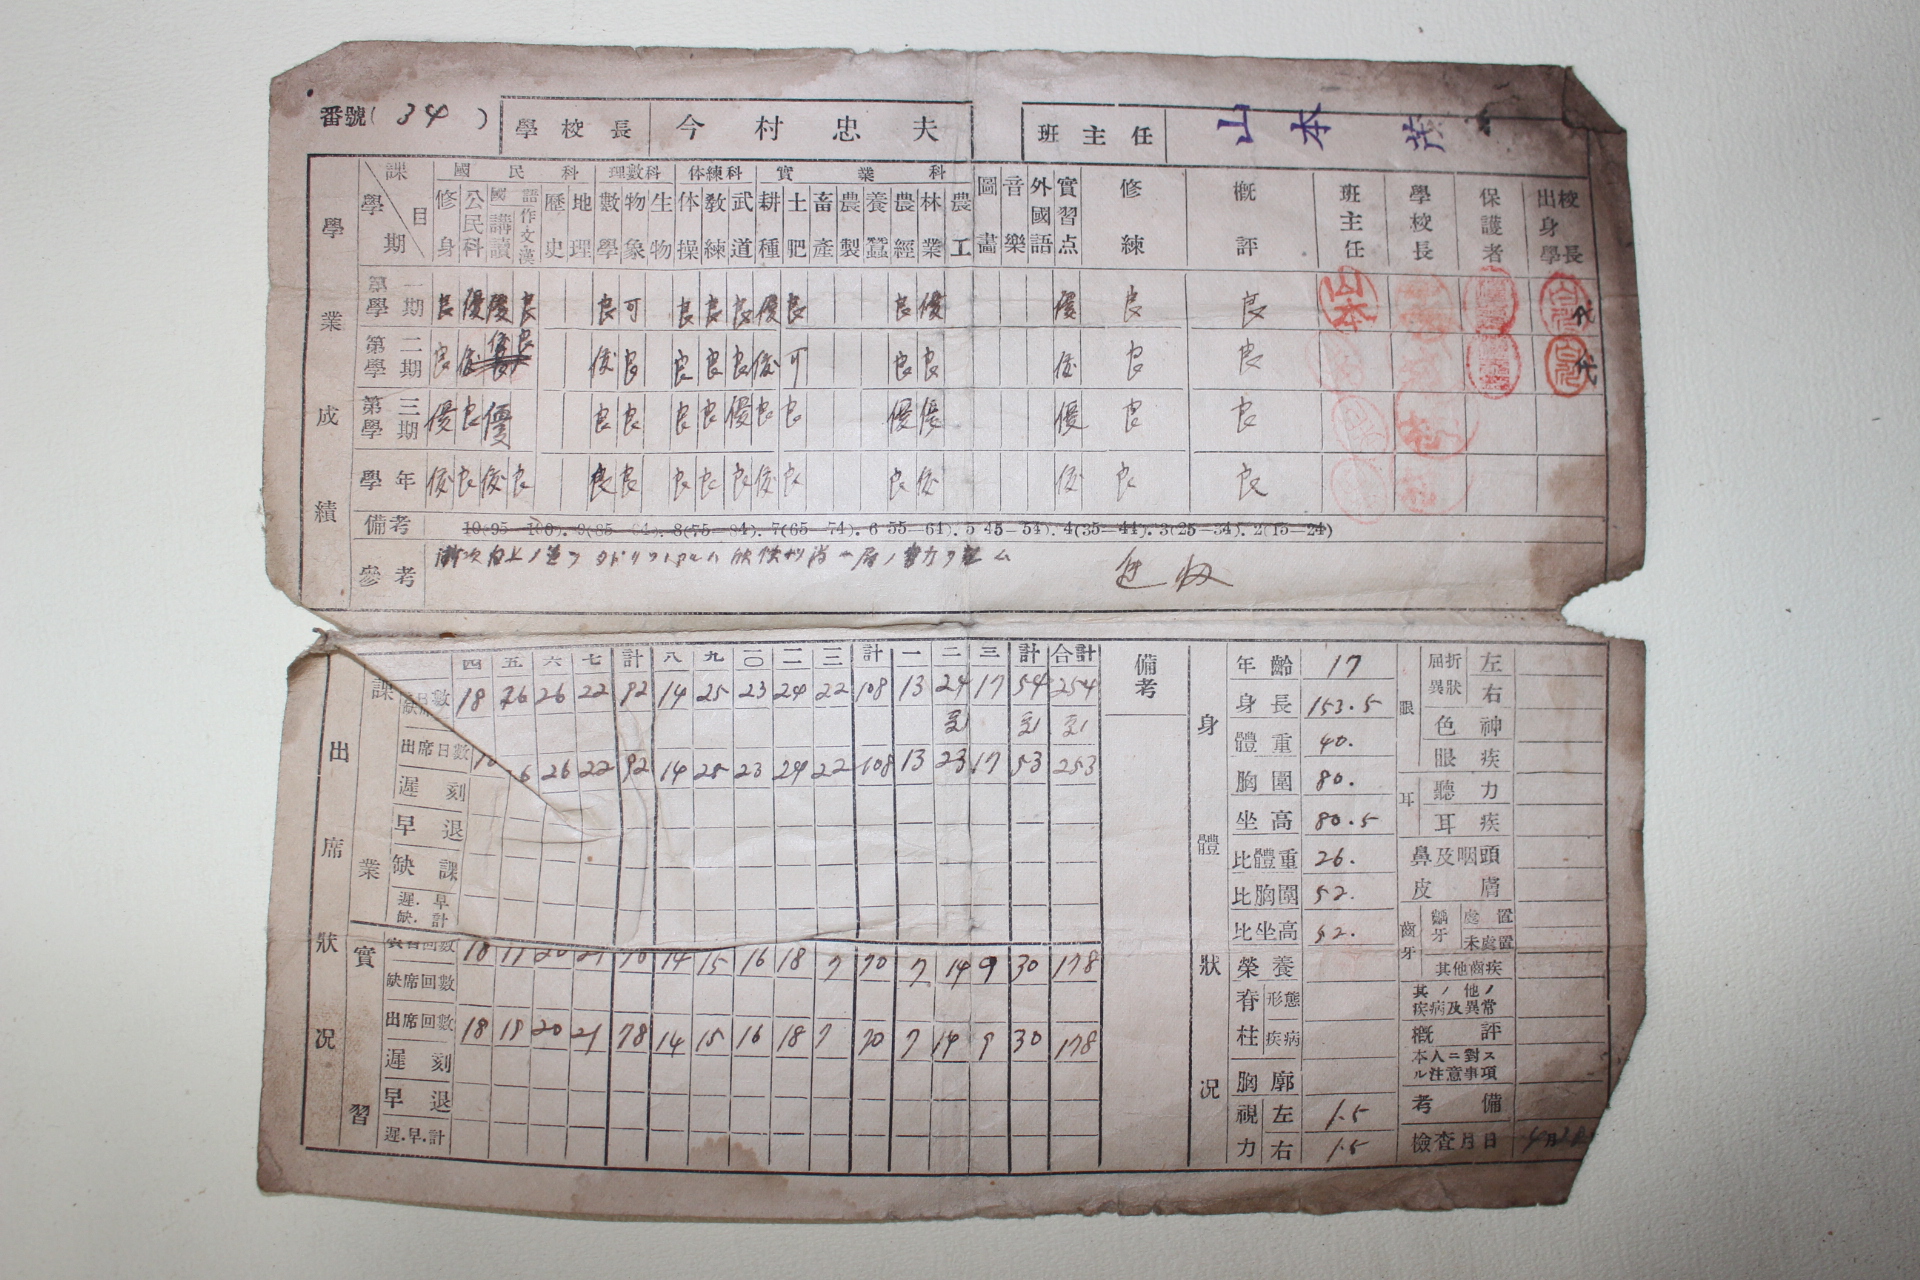 番號( 34 )
學校長 今村忠夫 班主任 山本
學業成績
課目 學期
國民科 理數科 体練科 實業科
修身 公民科 國語 講讀 作文 漢 歷史 地理 數學 物象 生物 体操 教練 武道 耕種 土肥 畜產 農製 養蠶 農經 林業 農工 圖畫 音樂 外國語 實習点 修練 概評 班主任 學校長 保護者 出身學校長
第一學期 良 優 優 良 良 可 良 良 良 優 良 良 優 優 良 良 山本 代
第二學期 良 優 優 良 優 良 良 良 良 優 可 良 良 優 良 良 代
第三學期 優 良 優 良 良 良 良 優 良 良 優 優 優 良 良
學年 優 良 優 良 良 良 良 良 良 優 良 良 優 優 良 良
備考 10(95—100). 9(85—94). 8(75—84). 7(65—74). 6 55—64). 5 45—54). 4(35—44). 3(25—34). 2(15—24)
參考
出席狀況
四 五 六 七 計 八 九 一〇 一一 一二 計 一 二 三 計 合計
課業
日數 18 26 26 22 92 14 25 23 24 22 108 13 24 17 54 254
缺席
出席日數 6 26 22 92 14 25 23 24 22 108 13 23 17 53 253
遲刻
早退
缺課
遲.早.缺.計
實習
實習回數 18 19 20 21 78 14 15 16 18 7 70 7 14 9 30 178
缺席回數
出席回數 18 19 20 21 78 14 15 16 18 7 70 7 14 9 30 178
遲刻
早退
遲.早.計
備考
身體狀況
年齡 17
身長 153.5
體重 40.
胸圍 80.
坐高 80.5
比體重 26.
比胸圍 52.
比坐高 52.
榮養
脊柱 形態
疾病
胸廓
視力 左 1.5
右 1.5
眼 屈折異狀 左
右
色神
眼疾
耳 聽力
耳疾
鼻及咽頭
皮膚
齒牙 齲牙 處置
未處置
其他齒疾
其ノ他ノ疾病及異常
概評
本人ニ對スル注意事項
考備
檢查月日